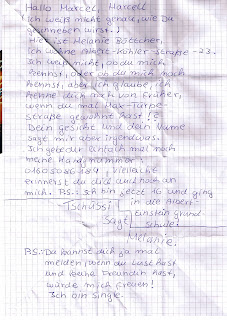 Hallo Marcel, Marcell
(Ich weiß nicht genau, wie Du
geschrieben wirst.)
Hier ist Melanie Böttcher,
Ich wohne Albert-Köhler Straße -23.
Ich weiß nicht, ob du mich
kennst, oder ob du mich noch
kennst, aber ich glaube, ich
kenne dich noch von früher,
wenn du mal Max-Türpe-
straße gewohnt hast!?
Dein Gesicht und dein Name
sagt mir aber irgendwas.
Ich gebe dir einfach mal noch
meine Handynummer:
Vielleicht
erinnerst du dich auch noch an
mich. P.S.: Ich bin jetzt 16 und ging
in die Albert-
Einstein Grund-
schule.
Tschüssi
Sagt
Melanie.
P.S.: Du kannst dich ja mal
melden, wenn du Lust hast
und keine Freundin hast,
würde mich freuen!
Ich bin Single.